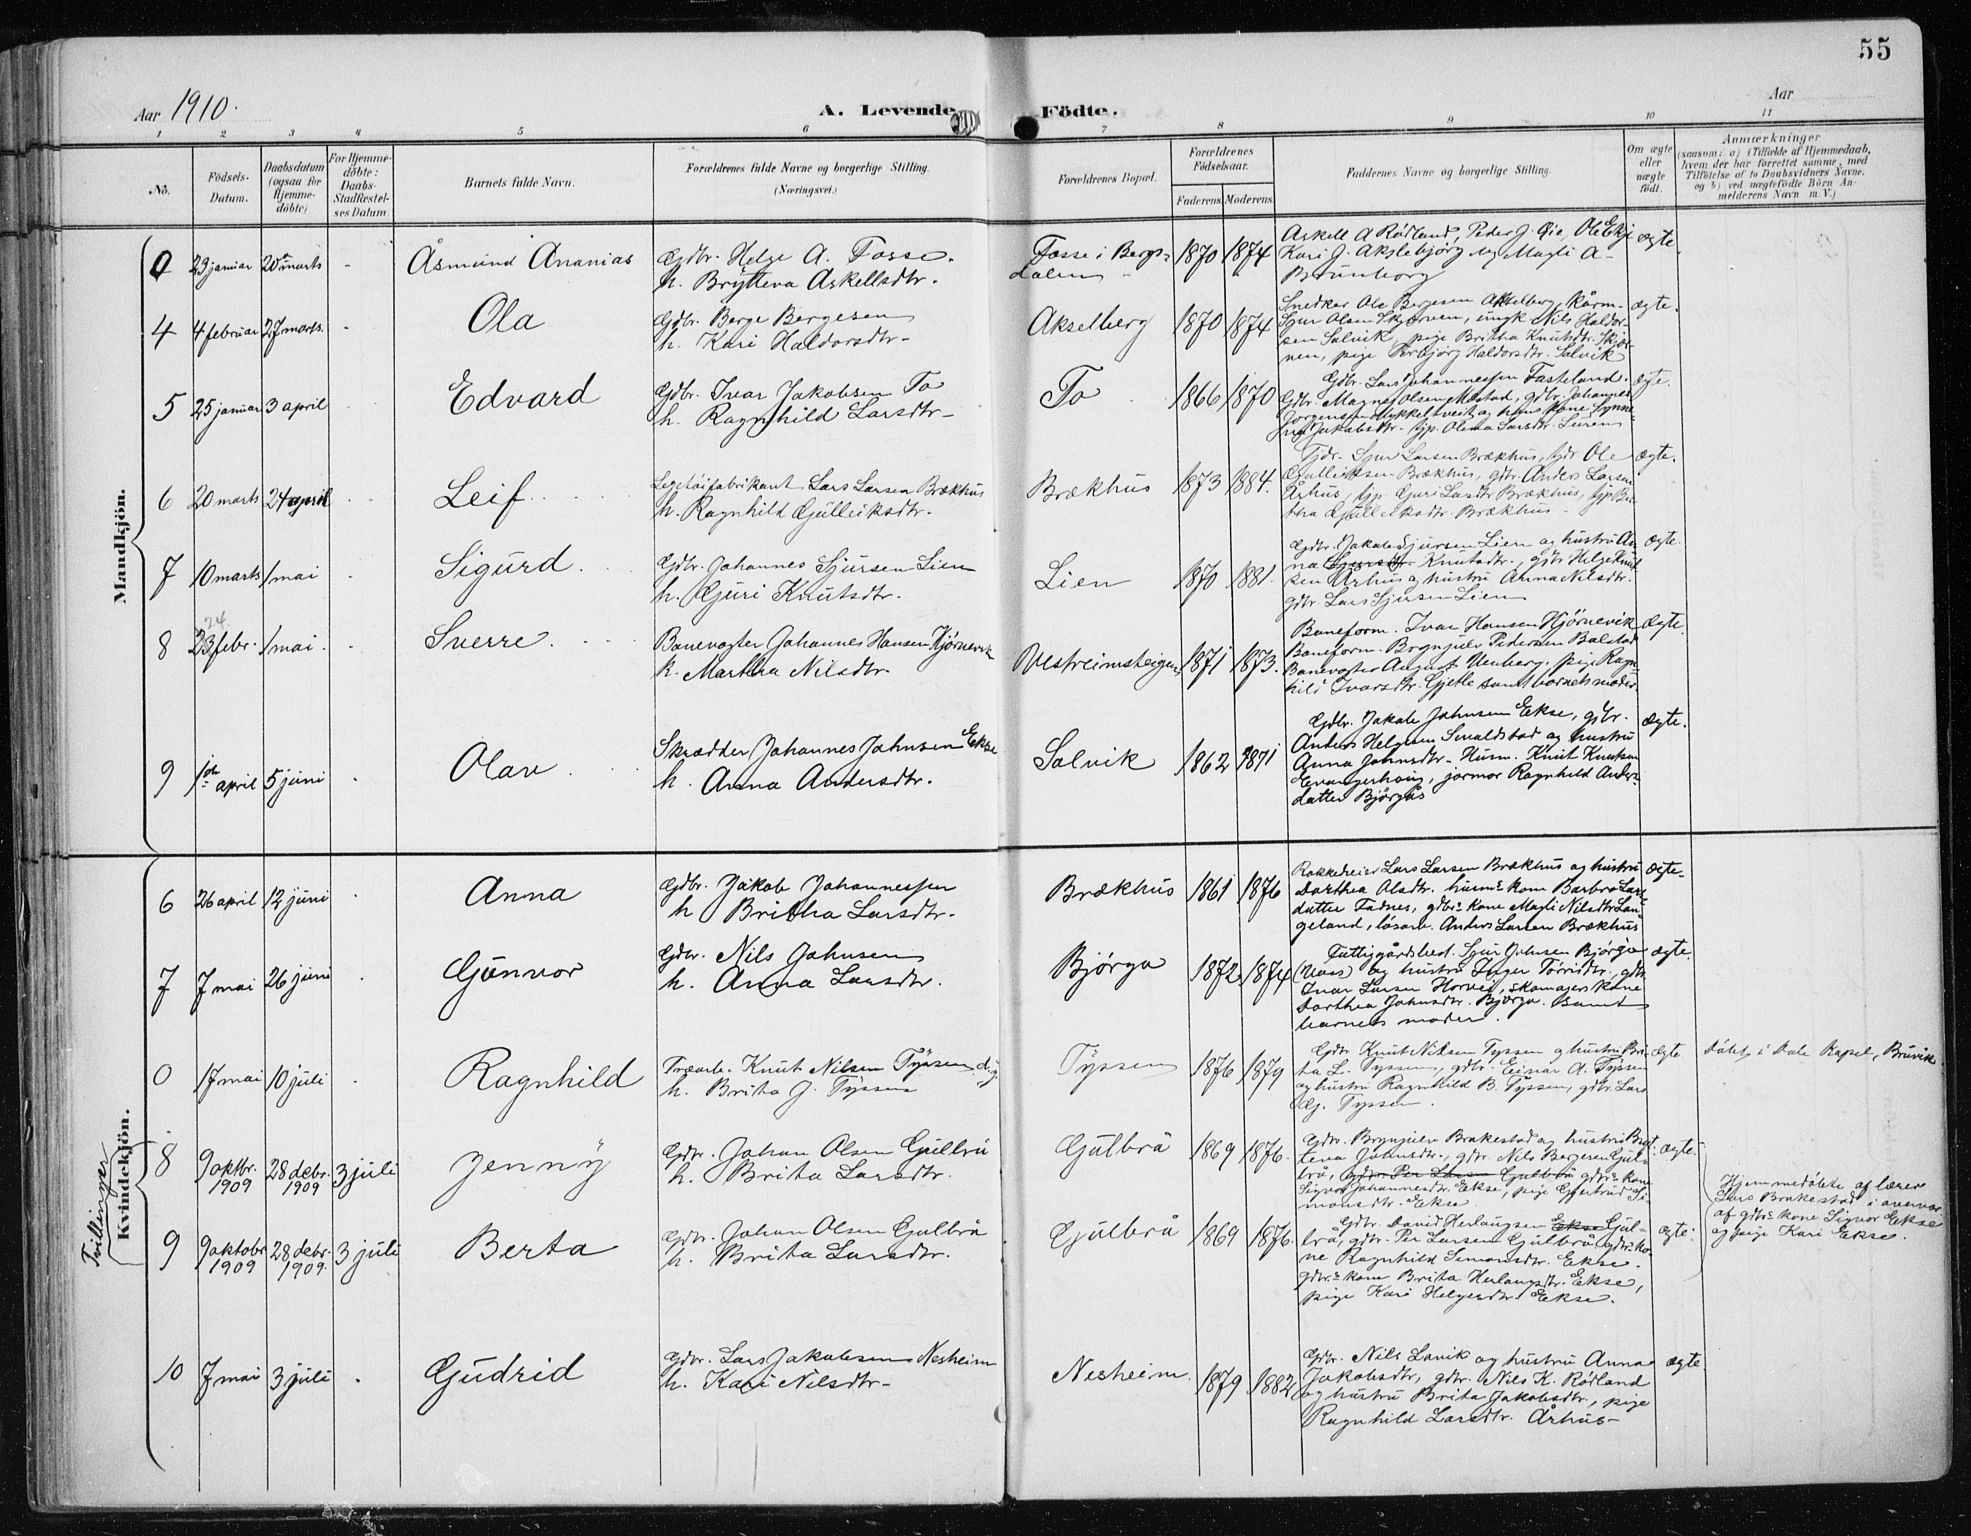 55
Aar 1910.
A. Levende Födte.
Aar
1 2 3 4 5 6 7 8 9 10 11
No.
Födsels-
Datum.
Daabsdatum
(ogsaa for
Hjemme-
döbte)
For Hjemme-
döbte:
Daabs-
Stadfæstel-
ses Datum.
Barnets fulde Navn.
Forældrenes fulde Navne og borgerlige Stilling.
(Næringsvei.)
Forældrenes Bopæl.
Forældrenes
Födselsaar.
Faderens. Moderens.
Faddernes Navne og borgerlige Stilling.
Om ægte
eller
uægte
födt.
Anmærkninger
(saasom: a) i Tilfælde af Hjemmedaab,
hvem der har forrettet samme, med
Tilföielse af to Daabsvidners Navne.
og b) ved uægtefödte Börn An-
melderens Navn m. V.)
Mandkjön.
0 29 januar 20de marts - Åsmund Ananias
Gdbr. Helge A. Fosse.
h. Brytteva Askellsdtr.
Fosse i Bergs-
dalen
1870 1874
Askell A Rödland, Peder J. Ole Ekje
Kari J. Akslebjörg og Magli A-
Brunborg
ægte.
4 4 februar 27 marts. - Ola
Gdbr. Berge Bergesen
h. Kari Haldorsdtr-
Akselberg 1870 1874
Snedker Ole Bergesen Akselberg,
Sjur Olsen Skjerven, ungk Nils Haldor-
sen Solvik, pige Britha Knutsdtr. Skjer-
ven, pige Herbjörg Haldorsdtr. Solvik
ægte.
5 25 januar 3 april Edvard
Gdbr. Ivar Jakobsen To
h. Ragnhild Larsdtr-
To 1866 1870
Gdbr. Lars Johannessen Fasteland.
Gdbr. Magne Olsen Mestad, gdbr. Johannes
Jörgensen Mykkeltveit og hans kone Synne-
Jakobsdtr. tjp. Olena Larsdtr.
ægte.
6 20 marts 24 april - Leif
Legetöifabrikant Lars Larsen Brækhus
h. Ragnhild Gulleiksdtr.
Brækhus 1873 1884.
Gdr. Sjur Larsen Brækhus, gdr. Ole
Gulleiksen Brækhus, gdr. Anders Larsen
Århus, tjp. Guri Larsdtr Brækhus, tjp Bri-
tha Gulleiksdtr. Brækhus
ægte.
7 10 marts 1 mai - Sigurd
Gdbr. Johannes Sjursen Lien
h. Guri Knutsdtr.
Lien 1870 1881.
Gdbr. Jakob Sjursen Lien og hustru An-
na Knutsdtr., gdbr. Helge Knut
sen Århus og hustru Anna Nilsdtr.
gdbr. Lars Sjursen Lien
ægte.
24.
8 23 febr. 1 mai. - Sverre.
Banevogter Johannes Hansen Hjörnevik
h. Martha Nilsdtr.
Vestreimsteigen 1871 1873.
Baneform. Ivar Hansen Hjörnevik
Baneform. Brynjulv Pedersen Bolstad
Banevogter August Uenberg, pige Ragn-
hild Ivarsdtr. Gjetle samt barnets moder.
ægte.
9 1ste april 5 juni - Olav
Skrædder Johannes Johnsen Ekse
h. Anna Andersdtr.
Solvik 1862 1871
Gdbr. Jakob Johnsen Ekse, gdbr.
Anders Helgesen Smaldstad og hustru
Anna Johnsdtr. Husm. Knut Knutsen
Evangerhaug, jormor Ragnhild Anders-
datter Björgås
ægte.
Kvindekjön.
6 26 april 12 juni Anna
Gdbr. Jakob Johannessen
h Britha Larsdtr.
Brækhus 1861 1876
Rokkedreier Lars Larsen Brækhus og hustru
Dorthea Olsdtr. husms kone Barbro Lars-
datter Fadnes, gdbrs kone Magli Nilsdtr Lan-
geland, lösarb. Anders Larsen Brækhus
ægte.
7 7 mai 26 juni - Gunvor
Gdbr. Nils Johnsen
h. Anna Larsdtr.
Björgo 1872 1874
Fattiggårdsbest. Sjur Johnsen Björgo
(Voss) og hustru Inger Torrisdtr., gdbr.
Ivar Larsen Horvei, skomagers kone
Dorthea Johnsdtr. Björgo. samt
barnets moder.
ægte.
0 17 mai 10 juli Ragnhild
Træarb. Knut Nilsen Tyssen d.y.
h. Brita J. Tyssen
Tyssen 1876 1879
Gdbr. Knut Nilsen Tyssen og hustru Bri-
ta L. Tyssen, gdbr. Einar A. Tyssen
og hustru Ragnhild B. Tyssen, gdbr. Lars
G. Tyssen.
ægte
Döbt i Dale Kapel, Bruvik
Tvillinger
8 9 oktbr. 1909 28 debr. 1909 3 juli Jenny
Gdbr. Johan Olsen Gulbrå
h. Brita Larsdtr.
Gulbrå 1869 1876.
Gdbr. Brynjulv Brakestad og hustru Bryt-
teva Johnsdtr., gdbr. Nils Bergesen Gul-
brå, gdbr. Per Larsen Gulbrå gdbrs kone
Signor Johannesdtr. Ekse, pige Gjertrud Si-
monsdtr. Ekse
ægte.
9 9 oktobr 1909 28 debr. 1909. 3 juli Berta
Gdbr. Johan Olsen Gulbrå
h. Brita Larsdtr.
Gulbrå 1869 1876.
Gdbr. David Herlaugsen Ekse Gul-
brå, gdbr. Per Larsen Gulbrå, gdbrs ko-
ne Ragnhild Simonsdtr. Ekse.
gdbrs kone Brita Herlaugsdtr. Ekse,
pige Kari Helgesdtr. Ekse.
ægte.
Hjemmedöbte af lærer
Lars Brakestad i overvær
af gdbrs kone Signor Ekse
og pige Kari Ekse.
10 7 mai 3 juli - Gudrid
Gdbr. Lars Jakobsen Nesheim
h. Kari Nilsdtr-
Nesheim. 1879 1882
Gdbr. Nils Lavik og hustru Anna
Jakobsdtr, gdbr. Nils K. Rödland
og hustru Brita Jakobsdtr., pige
Ragnhild Larsdtr. Århus-
ægte